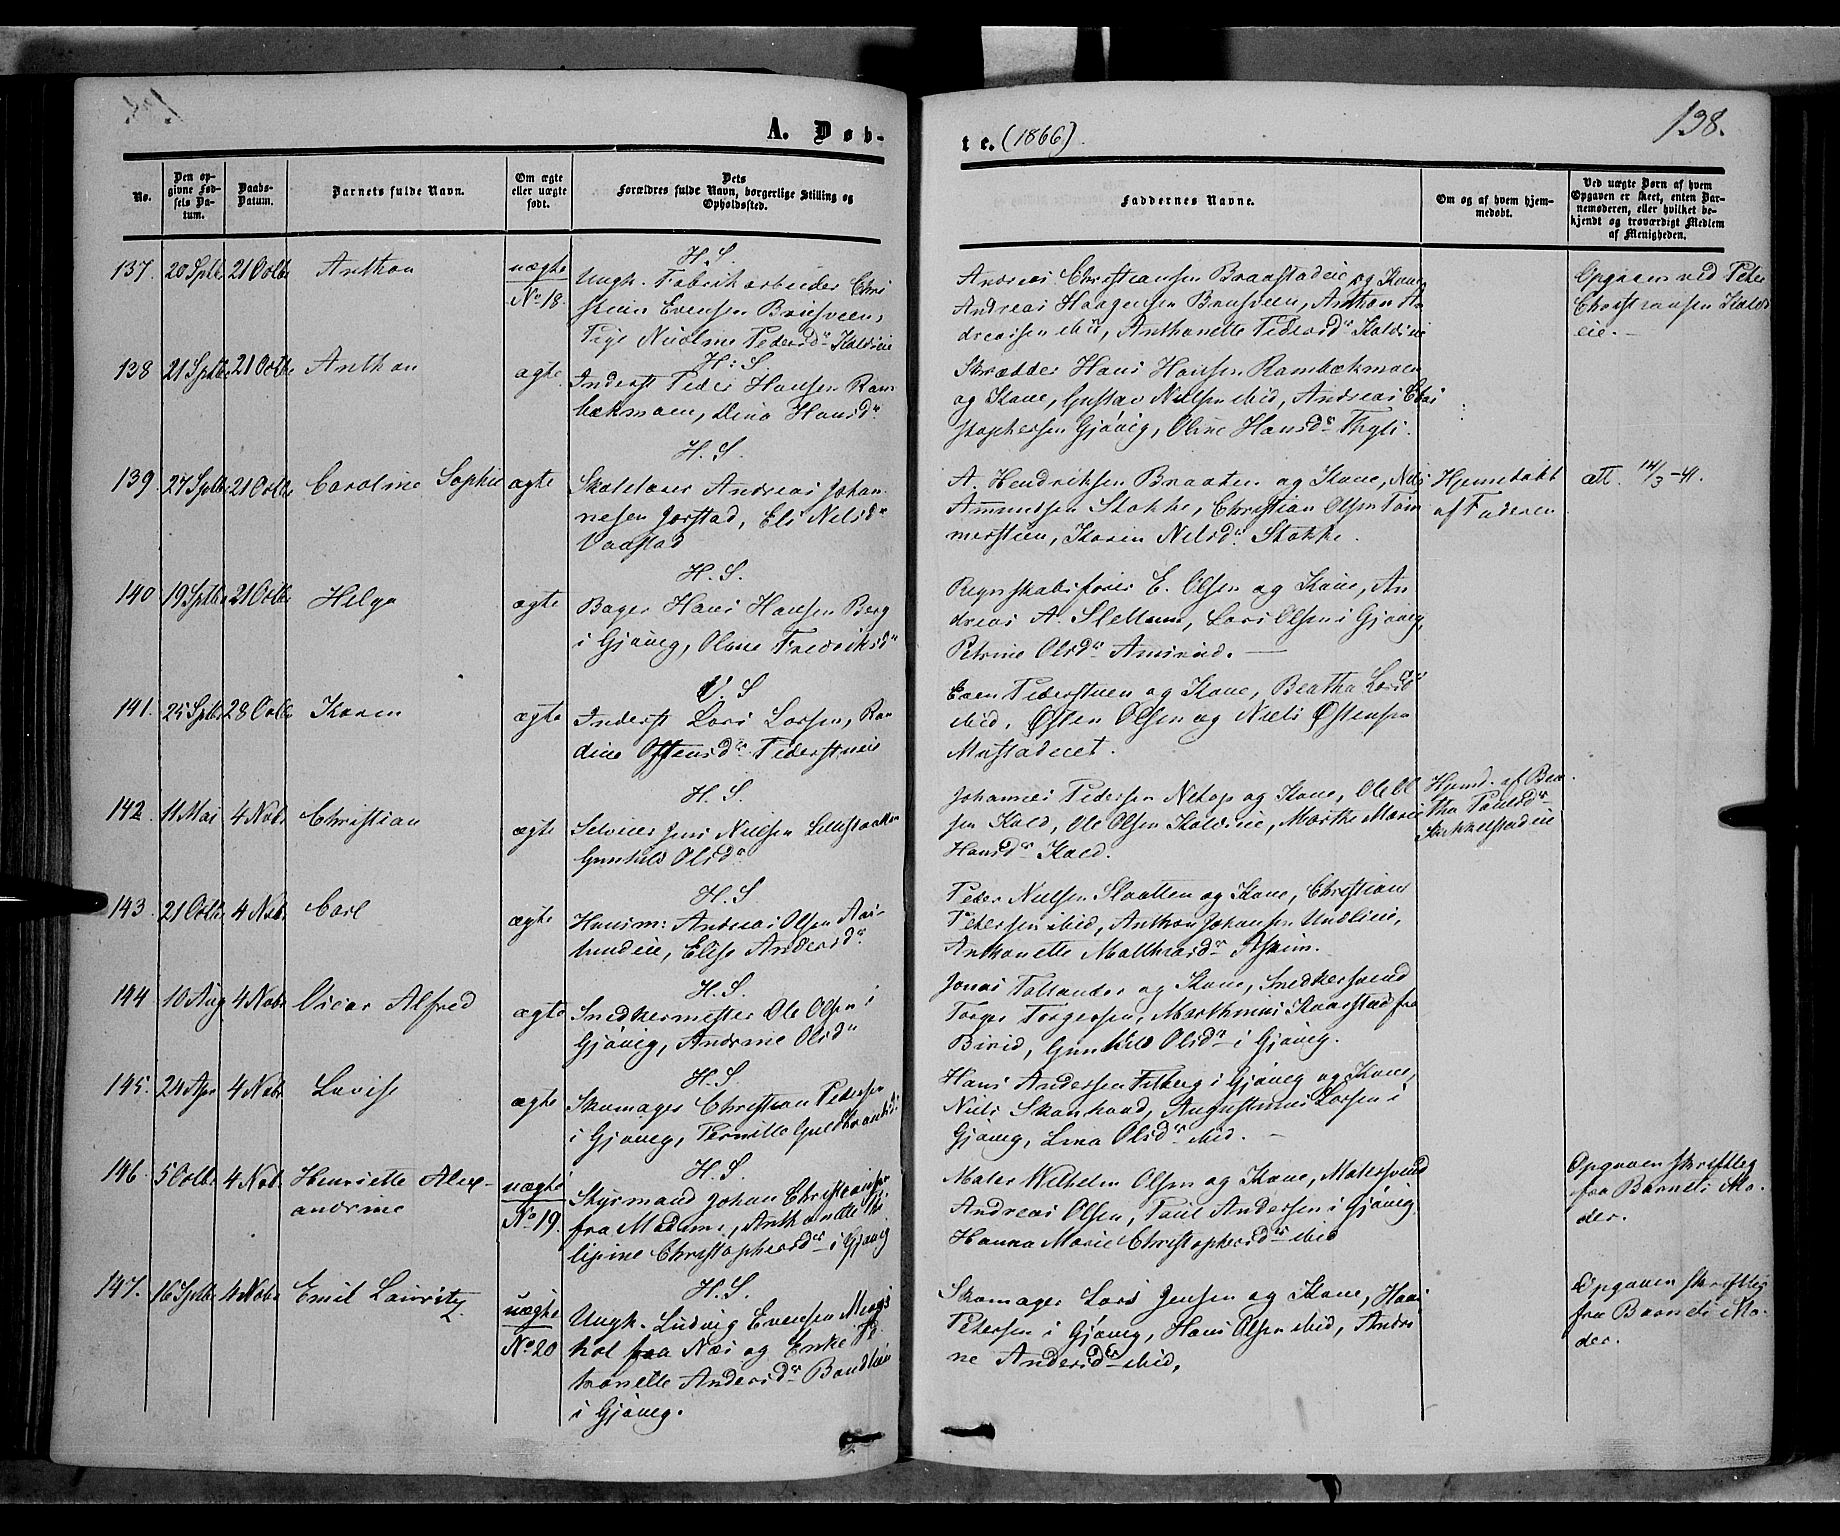 A. Døb-
te. (1866).
138.
No.
Den op-
givne Fød-
sels Da-
tum.
Daabs-
Datum.
Barnets fulde Navn.
Om ægte
eller uægte
født.
Dets
Forældres fulde Navn, borgerlige Stilling og
Opholdssted.
Faddernes Navne.
Om og af hvem hjem-
medøbt.
Ved uægte Børn af hvem
Opgaven er skeet, enten Bar-
nemoderen, eller hvilket be-
kjendt og troværdigt Medlem
af Menigheden.
137. 20 Sptbr 21 Octbr Anthon uægte No 18.
H. S.
Ungk. Fabrikarbeider Chri
stian Evensen
Pige Pedersdr
Andreas Christiansen Braastadeie og Kone
Andreas Haagensen Anthon An
dreassen ibid, Anthonette Pedersdr
Opgaven ved Peter
Christiansen
eie.
138 21 Sptbr 21 Octbr Anthon ægte
H: S
Inderst Peder Hansen Ram
bækmoen, Dina Hansdr
Skrædder Hans Hansen Rambækmoen
og Kone, Gustav Nielsen ibid, Andreas Chri
stophersen Gjøvig, Oline Hansdr
139. 27 Sptbr 21 Octbr Caroline Sophie ægte
H. S.
Skolelærer Andreas Johan
nesen Jørstad, Eli Nilsdr
Vaastad
A. Hendriksen Braaten og Kone, Nils
Amundsen Stokke, Christian Olsen Tøm
merstuen, Karen Nelsdr Stokke.
Hjemmedøbt
af Faderen
att. 14/3-41.
140 19 Sptbr 21 Octbr Helga ægte
H. S.
Bager Hans Hansen Berg
i Gjøvig, Oline Fredriksdr
Regnskabsfører E. Olsen og Kone, An
dreas A. Lars Olsen i Gjøvig,
Petrine Olsdr Amrud.
141. 25 Sptbr 28 Octbr Karen ægte
V. S
Inderst Lars Larsen, Ran
dine Østensdr Pederstueeie
Even Pederstuen og Kone, Beatha Larsdr
ibid, Østen Olsen og Niels Østensen
Mustadeiet.
142. 11 Mai 4 Nobr Christian ægte
H. S.
Selveier Jens Nielsen
Gunhild Olsdr
Johannes Pedersen og Kone, Ole Ol
sen Kald, Ole Olsen Marthe Marie
Hansdr Kald.
Hjemd. af Bea
tha Paulsdr
143. 21 Octbr 4 Nobr Carl ægte
H. S
Huusm: Andreas Olsen Aas-
lundeie, Elise Andersdr
Peder Nielsen Slaatten og Kone, Christian
Petersen ibid, Anthon Johansen
Anthonette Mathiasdr Askim.
144 10 Aug 4 Nobr Oscar Alfred ægte
H. S.
Snedkermester Ole Olsen i
Gjøvig, Andrine Olsdr
Jonas Tollander og Kone, Snedkersvend
Torger Torgersen, Marthinus Kaarstad fra
Birid, Gunhild Olsdr i Gjøvig.
145. 24 Apr 4 Nobr Lovise ægte
H. S.
Skomager Christian Pedersen
i Gjøvig, Pernille Guldbrandsdr
Hans Andersen Filberg i Gjøvig og Kone,
Niels Skonhovd, Augustinus Larsen i
Gjøvig, Lina Olsdr ibid.
146. 5 Octbr 4 Nob. Henriette Alex-
andrine uægte No 19.
H. S.
Styrmand Johan Christiansen
fra Anthonette Phi
lipine Christophersdr i Gjøvig
Maler Wilhelm Olsen og Kone, Malersvend
Andreas Olsen, Paul Andersen i Gjøvig
Hanna Marie Christophersdr ibid
Opgaven skriftlig
fra Barnets Mo-
der.
147. 16 Sptbr 4 Nobr Emil Lauritz uægte No 20
H. S.
Ungk. Ludvig Evensen
fra Næs og Enke
Andersdr
i Gjøvig.
Skomager Lars Jensen og Kone, Hans
Petersen i Gjøvig, Hans Olsen ibid, Andri
ne Andersdr ibid,
Opgaven skriftlig
fra Barnets Mo-
der.